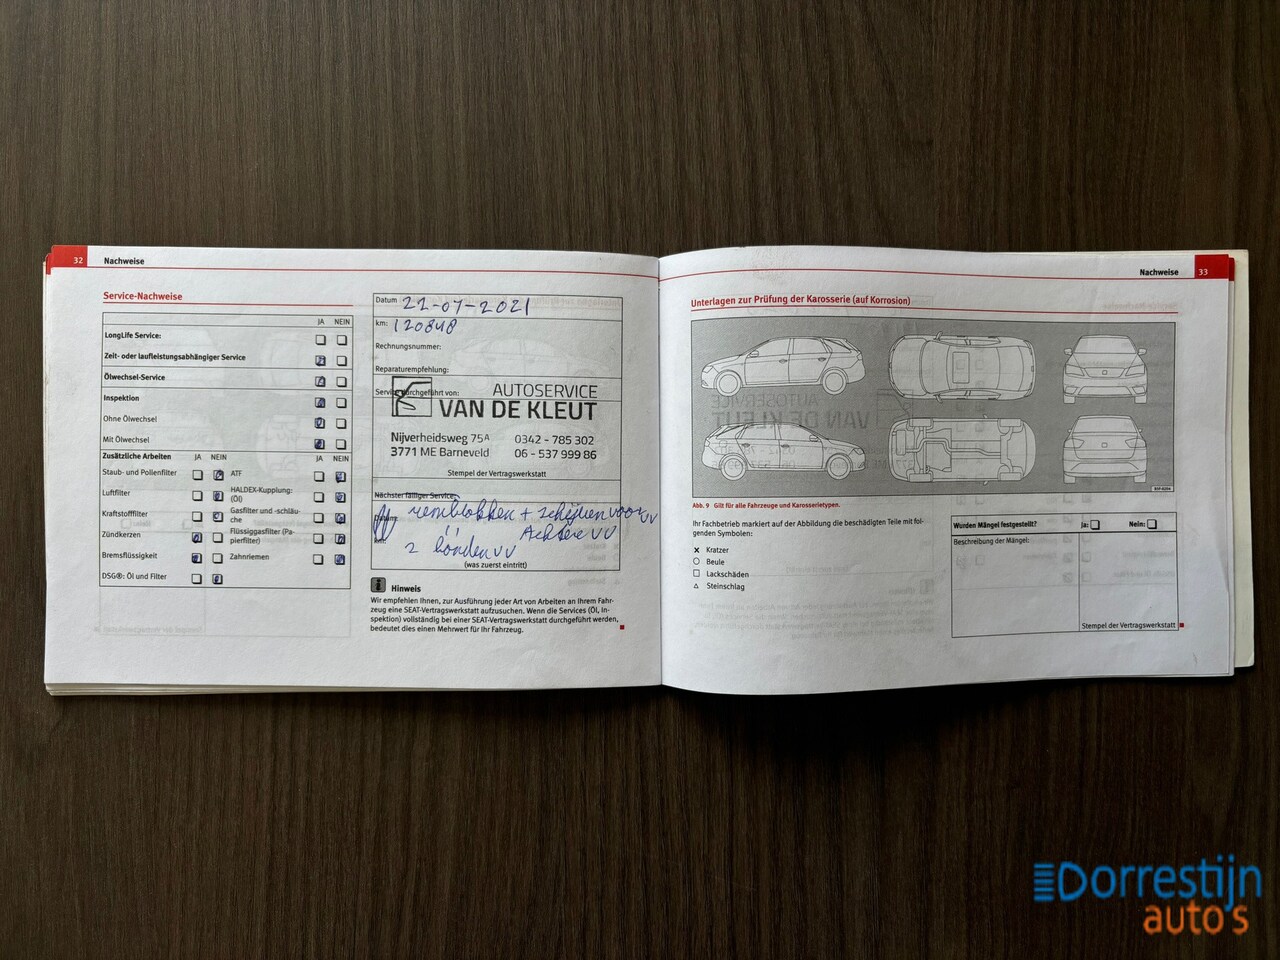 32 Nachweise
Service-Nachweise
JA NEIN
LongLife Service:
Zeit- oder laufleistungsabhängiger Service
Ölwechsel-Service
Inspektion
Ohne Ölwechsel
Mit Ölwechsel
Zusätzliche Arbeiten JA NEIN JA NEIN
Staub- und Pollenfilter ATF
Luftfilter HALDEX-Kupplung:
(Öl)
Kraftstofffilter Gasfilter und -schläu-
che
Zündkerzen Flüssiggasfilter (Pa-
pierfilter)
Bremsflüssigkeit Zahnriemen
DSG®: Öl und Filter
Datum 22-07-2021
km: 120848
Rechnungsnummer:
Reparaturempfehlung:
Service durchgeführt von:
AUTOSERVICE
VAN DE KLEUT
Nijverheidsweg 75A 0342 - 785 302
3771 ME Barneveld 06 - 537 999 86
Stempel der Vertragswerkstatt
Nächster fälliger Service:
remblokken + schijven voor vv
" Achter vv
2 banden vv
(was zuerst eintritt)
Hinweis
Wir empfehlen Ihnen, zur Ausführung jeder Art von Arbeiten an Ihrem Fahr-
zeug eine SEAT-Vertragswerkstatt aufzusuchen. Wenn die Services (Öl, In-
spektion) vollständig bei einer SEAT-Vertragswerkstatt durchgeführt werden,
bedeutet dies einen Mehrwert für Ihr Fahrzeug.
Nachweise 33
Unterlagen zur Prüfung der Karosserie (auf Korrosion)
Abb. 9 Gilt für alle Fahrzeuge und Karosserietypen.
Ihr Fachbetrieb markiert auf der Abbildung die beschädigten Teile mit fol-
genden Symbolen:
Kratzer
Beule
Lackschäden
Steinschlag
Wurden Mängel festgestellt? Ja: Nein:
Beschreibung der Mängel:
Stempel der Vertragswerkstatt
Dorrestijn
auto's